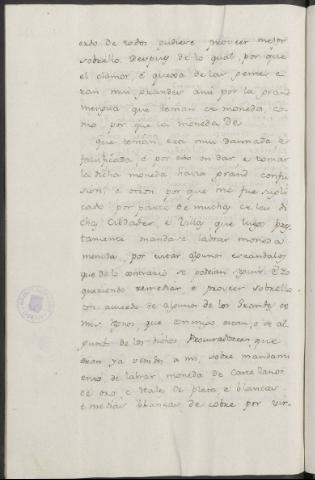 erdo de todos pudiese proveer mejor
sobrello. Despues de lo qual, por que
el clamor, é quexa de las gentes e
ran mui grandes ansi por la grand
mengua que tenian de moneda, co
mo por que la moneda De
que tenian, era mui dannada é
falsificada é por eso en dar e tomar
la dicha moneda havia grand confu
sion, e otrosi por que me fue supli
cado por parte de muchas de las di
chas Cibdades, é Villas que luego pres
tamente mandase labrar moneda
menuda, por escusar algunos escandalos
que de lo contrario se podrian seguir. É Yo
queriendo remediar é proveer sobrello
con acuerdo de algunos de los Grandes de
mis Reynos que conmigo estan, é de al
gunos de los dichos Procuradores que
eran ya venidos a mi, sobre mandam
iento de labrar moneda de Castellanos
de oro e reales de plata e blancas
e medias blancas de cobre por vir-